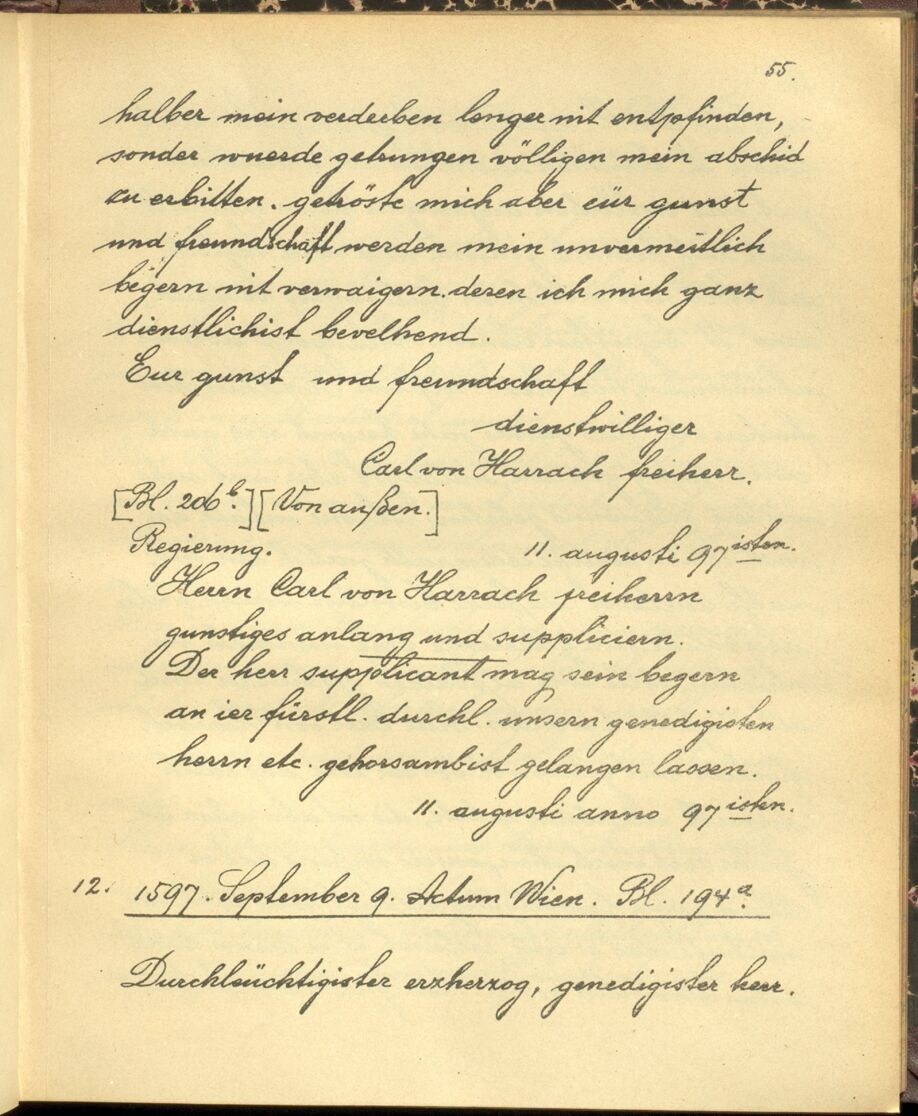 55.
halber mein verderben lenger nit entpfinden,
sonder wuerde getrungen völligen mein abschid
zu erbitten. getröste mich aber eür gunst
und freundschaft werden mein unvermeitlich
begern nit verwaigern. deren ich mich ganz
dienstlichist bevelhend.
Eur gunst und freundschaft
dienstwilliger
Carl von Harrach freiherr.
[Bl. 206b.] [Von außen.]
Regierung. 11. augusti 97isten.
Herrn Carl von Harrach freiherrn
gunstiges anlang und suppliciern.
Der herr supplicant mag sein begern
an ier fürstl. durchl. unsern genedigisten
herrn etc. gehorsambist gelangen lassen.
11. augusti anno 97isten.
12. 1597. September 9. Actum Wien. Bl. 194a.
Durchleüchtigister erzherzog, genedigister herr.